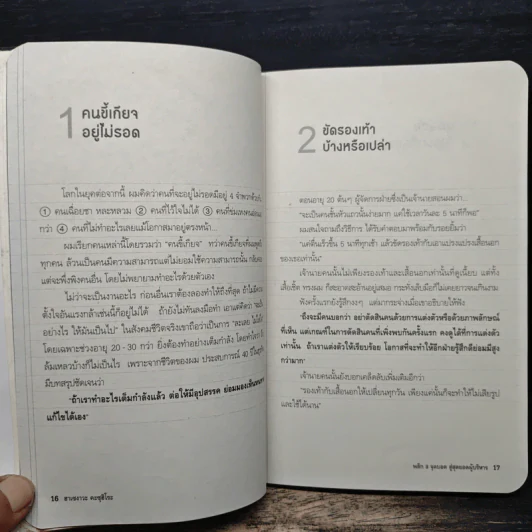 1
คนขี้เกียจ
อยู่ไม่รอด
โลกในยุคต่อจากนี้ ผมคิดว่าคนที่จะอยู่ไม่รอดมีอยู่ 4 จำพวกด้วยกัน
① คนเฉื่อยชา หละหลวม ② คนที่ไว้ใจไม่ได้ ③ คนที่ชม
กว่า ④ คนที่ไม่ทำอะไรเลยแม้โอกาสมาอยู่ตรงหน้า
ผมเรียกคนเหล่านี้โดยรวมว่า "คนขี้เกียจ"
ทุกคน ล้วนเป็นคนมีความสามารถแต่ไม่ยอมใช้ความสามารถนั้น
แต่จะพึ่งพิงคนอื่น โดยไม่พยายามทำอะไรด้วยตัวเอง
ไม่ว่าจะเป็นงานอะไร ก่อนอื่นเราต้องลองทำให้ถึงที่สุด
อย่างไร ให้มันเป็นไป" ในสังคมชีวิตจริงเขาถือว่าเป็นการ
โดยเฉพาะช่วงอายุ 20 - 30 กว่า ยิ่งต้องทำอย่างเต็มกำลัง
ล้มเหลวบ้างก็ไม่เป็นไร เพราะจากชีวิตของผม ประสบการณ์ 40
มีบทสรุปชัดเจนว่า
"ถ้าเราทำอะไรเต็มกำลังแล้ว ต่อให้มีอุปสรรค ย่อมมองเห็น
แก้ไขได้เอง"
16 ฮาเซงาวะ คะซุฮิโระ
2
ขัดรองเท้า
บ้างหรือเปล่า
ตอนอายุ 20 ต้นๆ ผู้จัดการฝ่ายซึ่งเป็นเจ้านายสอนผมว่า
"จะเป็นคนชั้นหัวแถวนั้นง่ายมาก แค่ใช้เวลาวันละ 5 นาทีก็พอ"
ผมสนใจถามถึงวิธีการ ได้รับคำตอบมาพร้อมกับรอยยิ้มว่า
"แค่ตื่นเร็วขึ้น 5 นาทีทุกเช้า แล้วขัดรองเท้ากับเอาแปรงแปรงเสื้อนอก
ของเราเท่านั้น"
เจ้านายคนนั้นไม่เพียงรองเท้าและเสื้อนอกเท่านั้นที่ดูเนี้ยบ แต่ทั้ง
เสื้อเชิ้ต ทรงผม ก็สะอาดสะอ้านอยู่เสมอ
ฟังครั้งแรกยังรู้สึกงงๆ แต่มากระจ่างเมื่อเขาอธิบายให้ฟัง
"ถึงจะมีคนบอกว่า อย่าตัดสินคนด้วยการแต่งตัวหรือด้วยภาพลักษณ์
ที่เห็น แต่เกณฑ์ในการตัดสินคนที่เพิ่งพบกันครั้งแรก คงดูได้ที่การแต่งตัว
เท่านั้น ถ้าเราแต่งตัวให้เรียบร้อย โอกาสที่จะทำให้อีกฝ่ายรู้สึกดีย่อมมีสูง
กว่ามาก"
เจ้านายคนนั้นยังบอกเคล็ดลับเพิ่มเติมอีกว่า
"รองเท้ากับเสื้อนอกให้เปลี่ยนทุกวัน เพียงแค่นั้นก็จะทำให้ไม่เสียรูป
และใช้ได้นาน"
พลิก 3 จุดบอด สู่สุดยอดผู้บริหาร 17